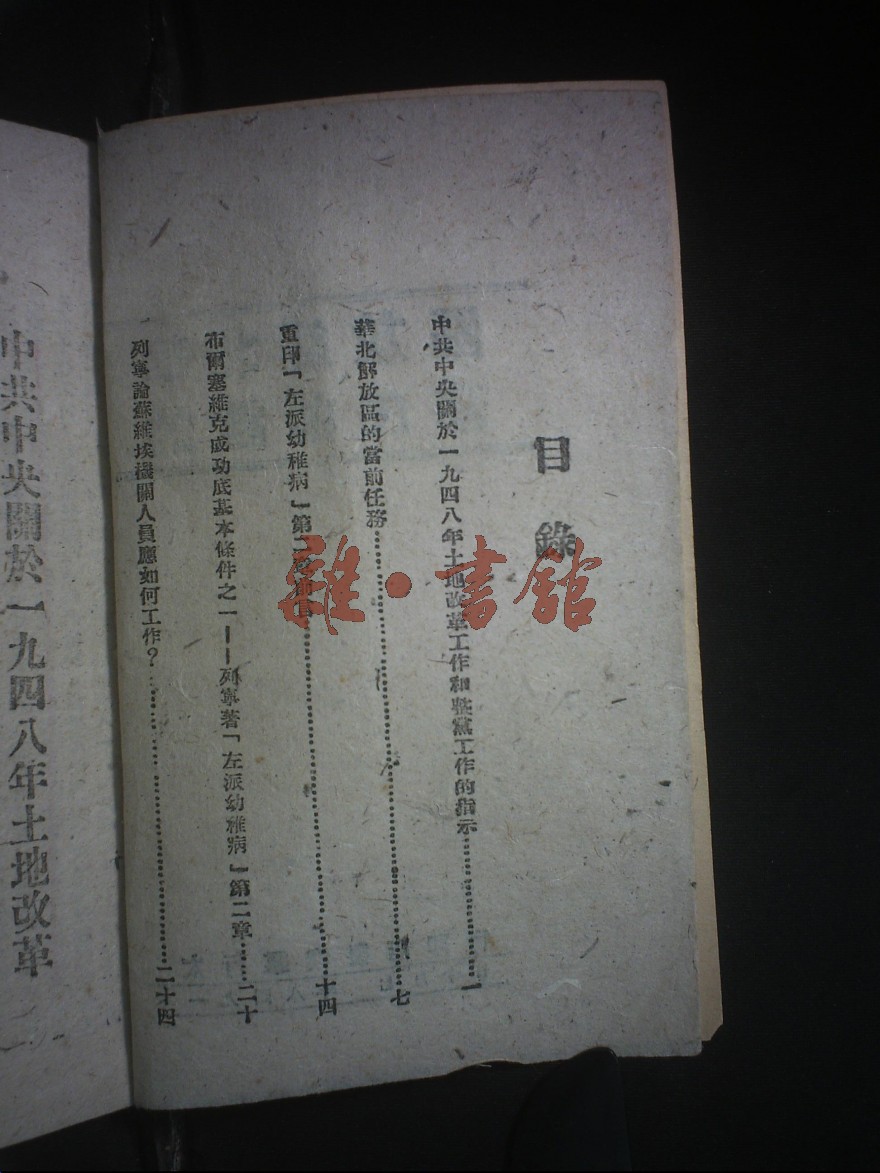 目錄
中共中央關於一九四八年土地改革工作和整黨工作的指示……一
華北解放區的當前任務……七
重印「左派幼稚病」第二章前言……十四
布爾塞維克成功底基本條件之一——列寧著「左派幼稚病」第二章……二十
列寧論蘇維埃機關人員應如何工作？……二十四
中共中央關於一九四八年土地改革
雜·書館